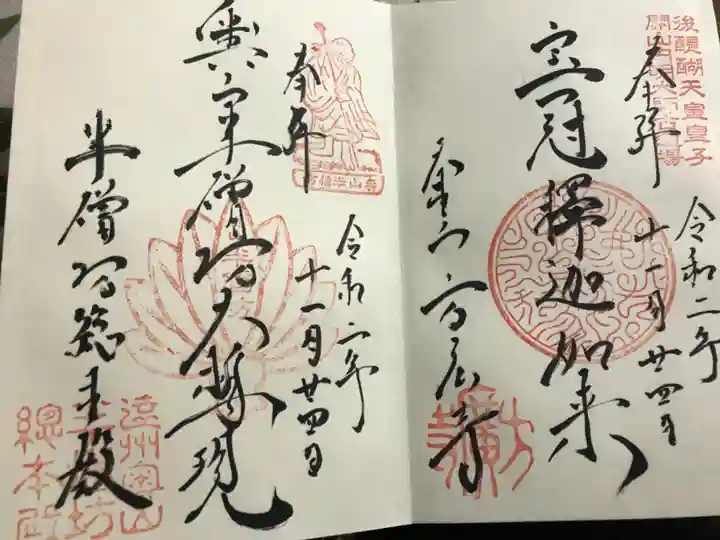 後醍醐天皇皇子
奉拝
令和二年
十一月廿四日
宝冠釋迦如来
奥山方広寺
方廣寺
奉拝
令和二年
十一月廿四日
奥山半僧坊大権現
半僧坊総本殿
遠州奥山
半僧坊
總本殿